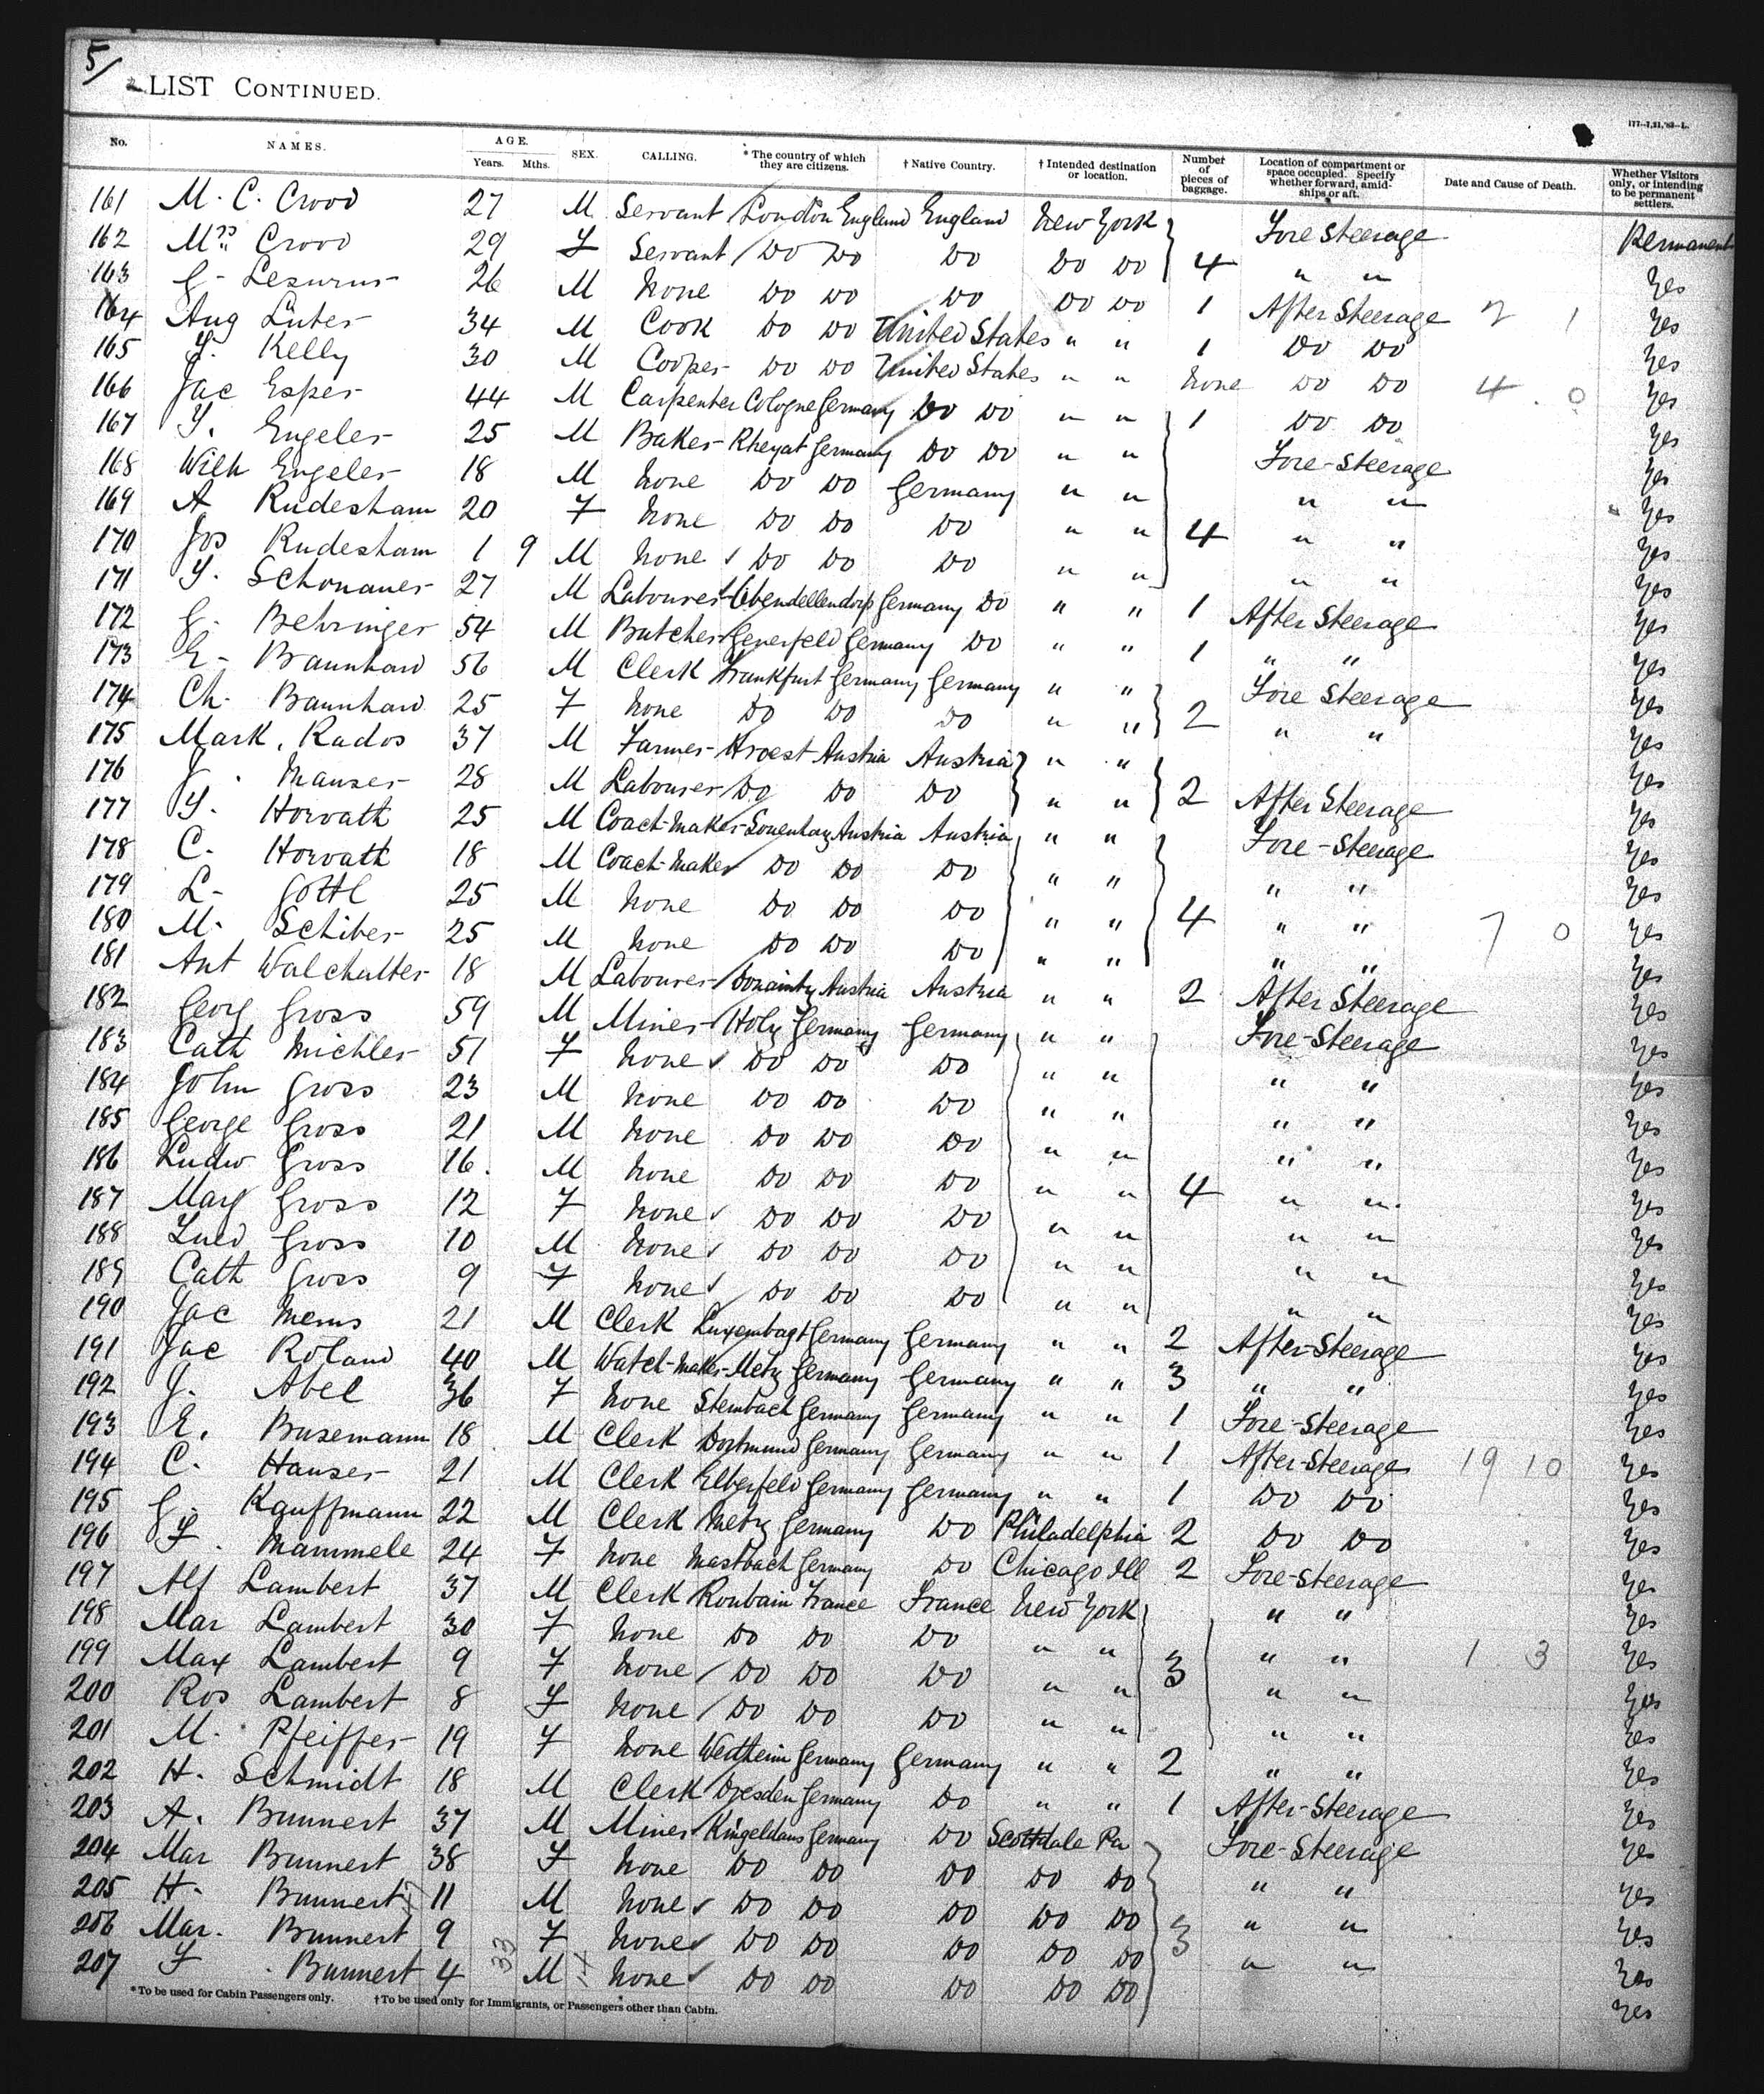 5/
LIST CONTINUED.
177--7,21,'83--L.
No. NAMES. AGE. Years. Mths. SEX. CALLING. * The country of which they are citizens. † Native Country. † Intended destination or location. Number of pieces of baggage. Location of compartment or space occupied. Specify whether forward, amidships or aft. Date and Cause of Death. Whether Visitors only, or intending to be permanent settlers.
161 M. C. Crood 27 M Servant London England England New York Fore Steerage Permanent
162 Mrs Crood 29 F Servant Do Do Do Do Do 4 " " Yes
163 G. 26 M None Do Do Do Do Do 1 After Steerage 2 1 Yes
164 Aug Luter 34 M Cook Do Do United States " " 1 Do Do Yes
165 J. Kelly 30 M Cooper Do Do United States " " None Do Do 4 0 Yes
166 Jac Esper 44 M Carpenter Cologne Germany Do Do " " 1 Do Do Yes
167 J. Engeler 25 M Baker Germany Do Do " " Fore-Steerage Yes
168 Wilh Engeler 18 M None Do Do Germany " " " " Yes
169 A Rudesham 20 F None Do Do Do " " 4 " " Yes
170 Jos Rudesham 1 9 M None Do Do Do " " " " Yes
171 J. Schonauer 27 M Labourer Germany Do " " 1 After Steerage Yes
172 G. Behringer 54 M Butcher Germany Do " " 1 " " Yes
173 E. Baunhard 56 M Clerk Frankfurt Germany Germany " " Fore Steerage Yes
174 Ch. Baunhard 25 F None Do Do Do " " 2 " " Yes
175 Mark. Rados 37 M Farmer Austria Austria " " Yes
176 J. Manser 28 M Labourer Do Do Do " " 2 After Steerage Yes
177 J. Horvath 25 M Coach-Maker Austria Austria " " Fore-Steerage Yes
178 C. Horvath 18 M Coach-Maker Do Do Do " " " " Yes
179 L. Gottl 25 M None Do Do Do " " 4 " " 7 0 Yes
180 M. Schiber 25 M None Do Do Do " " " " Yes
181 Ant Walchalter 18 M Labourer Austria Austria " " 2 After Steerage Yes
182 Georg Gross 59 M Miner Holz Germany Germany " " Fore-Steerage Yes
183 Cath Michler 51 F None Do Do Do " " " " Yes
184 John Gross 23 M None Do Do Do " " " " Yes
185 George Gross 21 M None Do Do Do " " " " Yes
186 Ludw Gross 16 M None Do Do Do " " 4 " " Yes
187 Mary Gross 12 F None Do Do Do " " " " Yes
188 Lued Gross 10 M None Do Do Do " " " " Yes
189 Cath Gross 9 F None Do Do Do " " " " Yes
190 Jac Mems 21 M Clerk Germany Germany " " 2 After-Steerage Yes
191 Jac Roland 40 M Watch-Maker Metz Germany Germany " " 3 " " Yes
192 J. Abel 36 F None Steinbach Germany Germany " " 1 Fore-Steerage Yes
193 E. Busemann 18 M Clerk Dortmund Germany Germany " " 1 After-Steerage 19 10 Yes
194 C. Hauser 21 M Clerk Elberfeld Germany Germany " " 1 Do Do Yes
195 G. Kauffmann 22 M Clerk Metz Germany Do Philadelphia 2 Do Do Yes
196 F. Mammele 24 F None Mastbach Germany Do Chicago Ill 2 Fore-Steerage Yes
197 Alf Lambert 37 M Clerk Roubain France France New York " " Yes
198 Mar Lambert 30 F None Do Do Do " " 3 " " 1 3 Yes
199 Max Lambert 9 F None Do Do Do " " " " Yes
200 Ros Lambert 8 F None Do Do Do " " " " Yes
201 M. Pfeiffer 19 F None Wertheim Germany Germany " " 2 " " Yes
202 H. Schmidt 18 M Clerk Dresden Germany Do " " 1 After-Steerage Yes
203 A. Bunnert 37 M Miner Germany Do Scottdale Pa Fore-Steerage Yes
204 Mar Bunnert 38 F None Do Do Do Do Do " " Yes
205 H. Bunnert 11 M None Do Do Do Do Do 3 " " Yes
206 Mar. Bunnert 9 F None Do Do Do Do Do " " Yes
207 F. Bunnert 4 33 M 14 None Do Do Do Do Do Yes
*To be used for Cabin Passengers only. †To be used only for Immigrants, or Passengers other than Cabin.